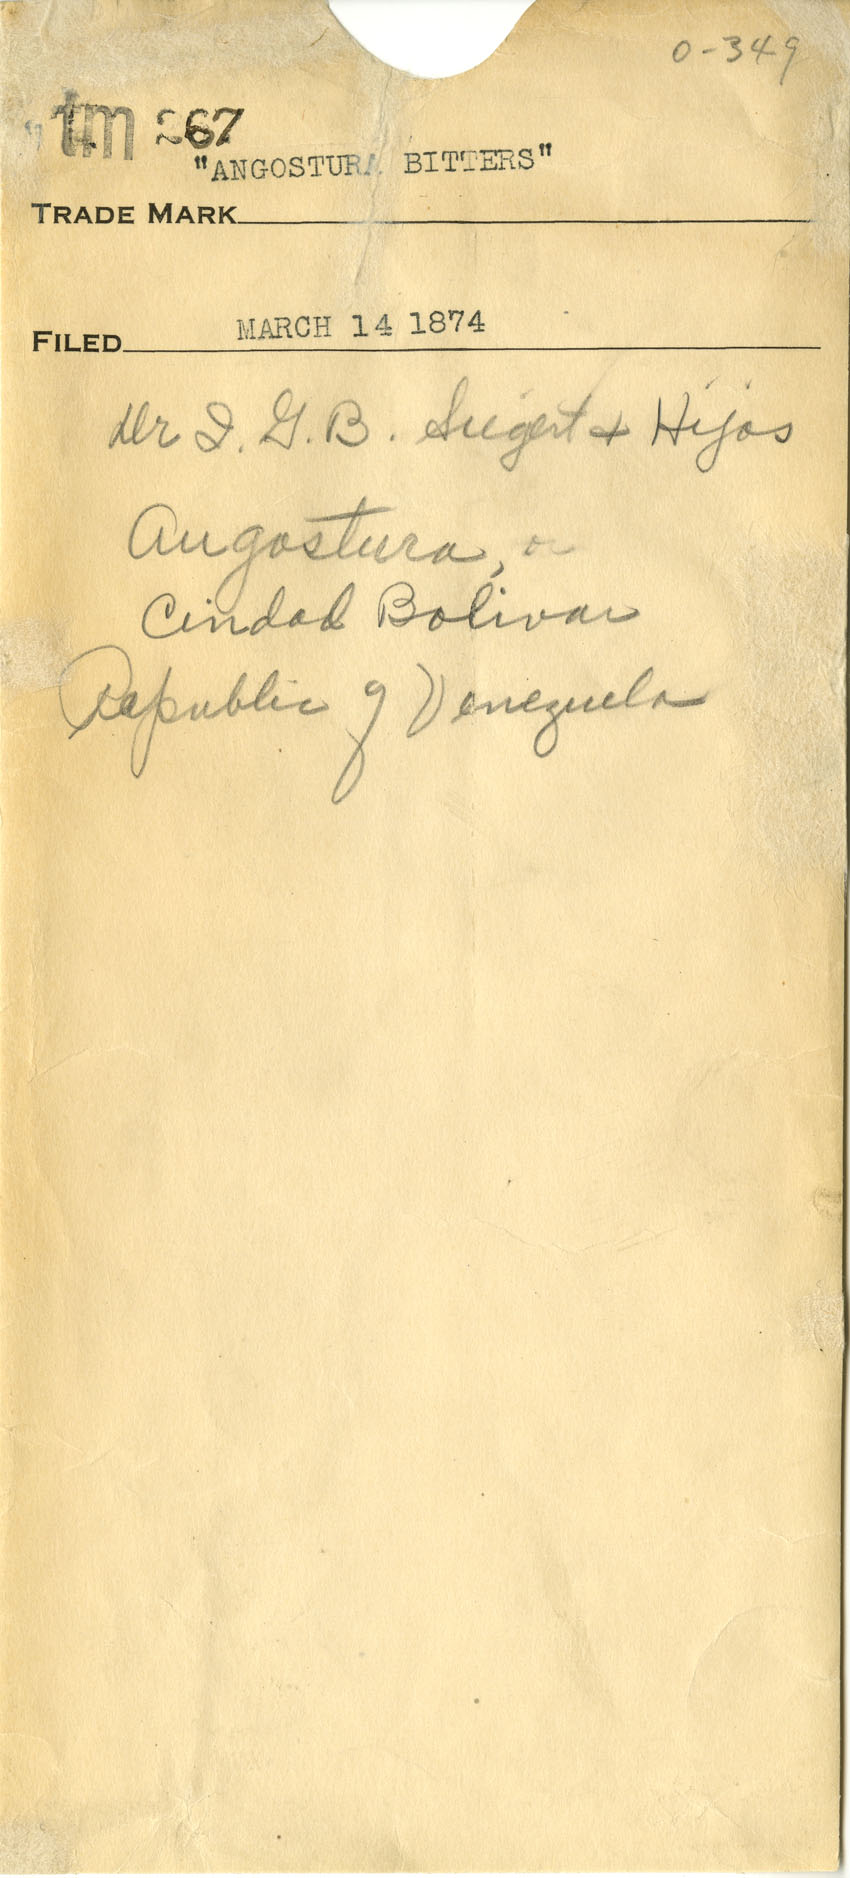 0-349
tm 267
"ANGOSTURA BITTERS"
TRADE MARK
FILED MARCH 14 1874
Dr J. G. B. Siegert & Hijos
Angostura, or
Ciudad Bolivar
Republic of Venezuela